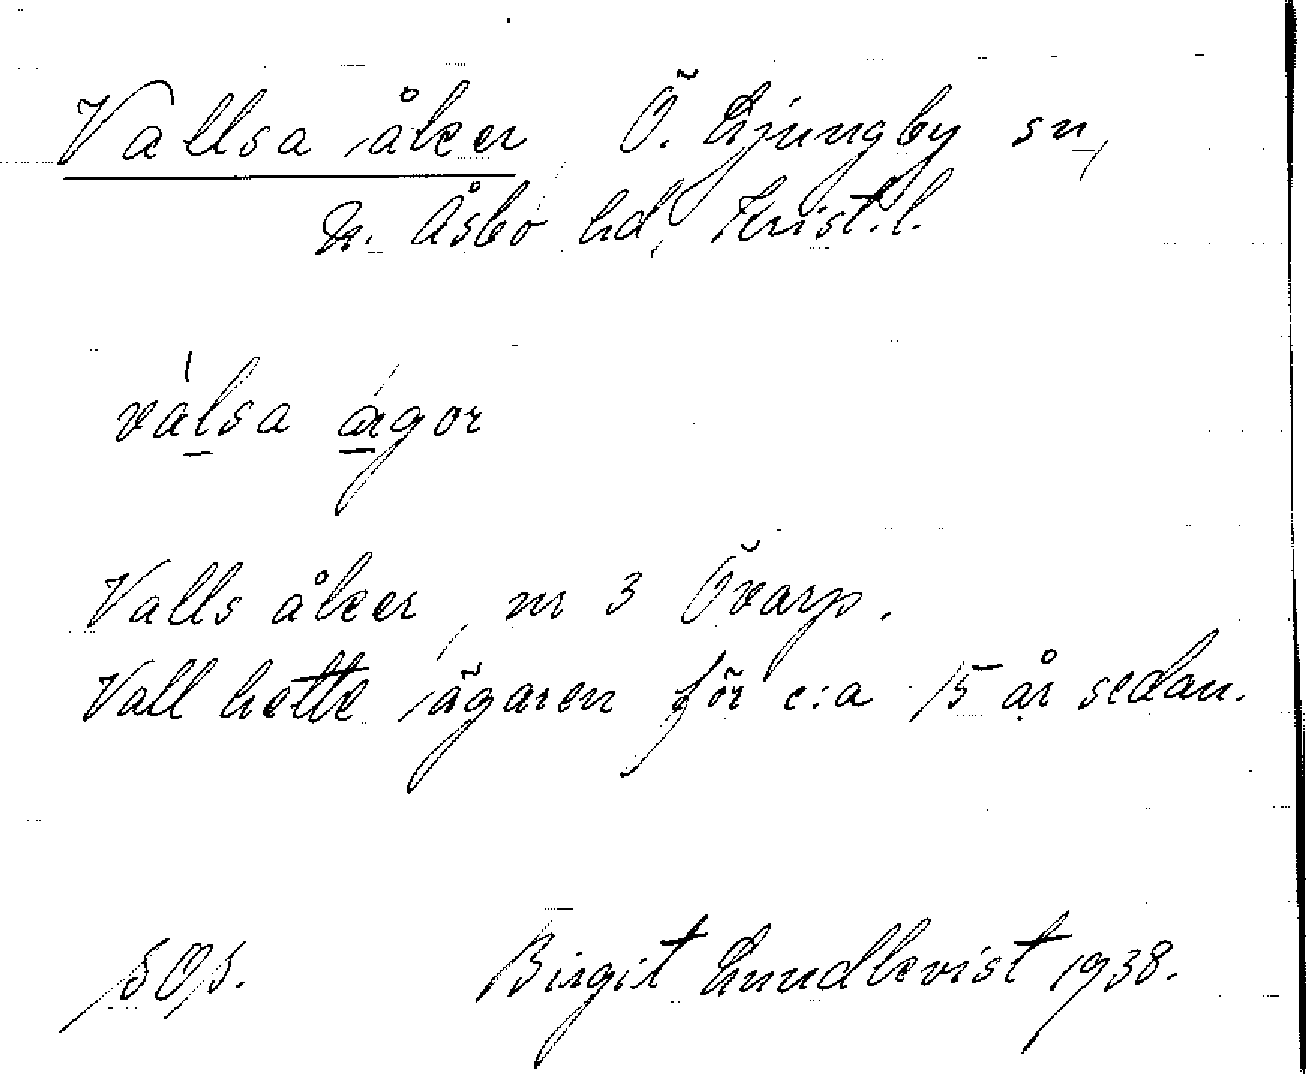 Vallsa åker, Ö. Ljungby sn,
N. Åsbo hd, Krist. l.
válsa ágor
Valls åker, nr 3 Övarp.
Vall hette ägaren för c:a 15 år sedan.
Birgit Lundkvist 1938.